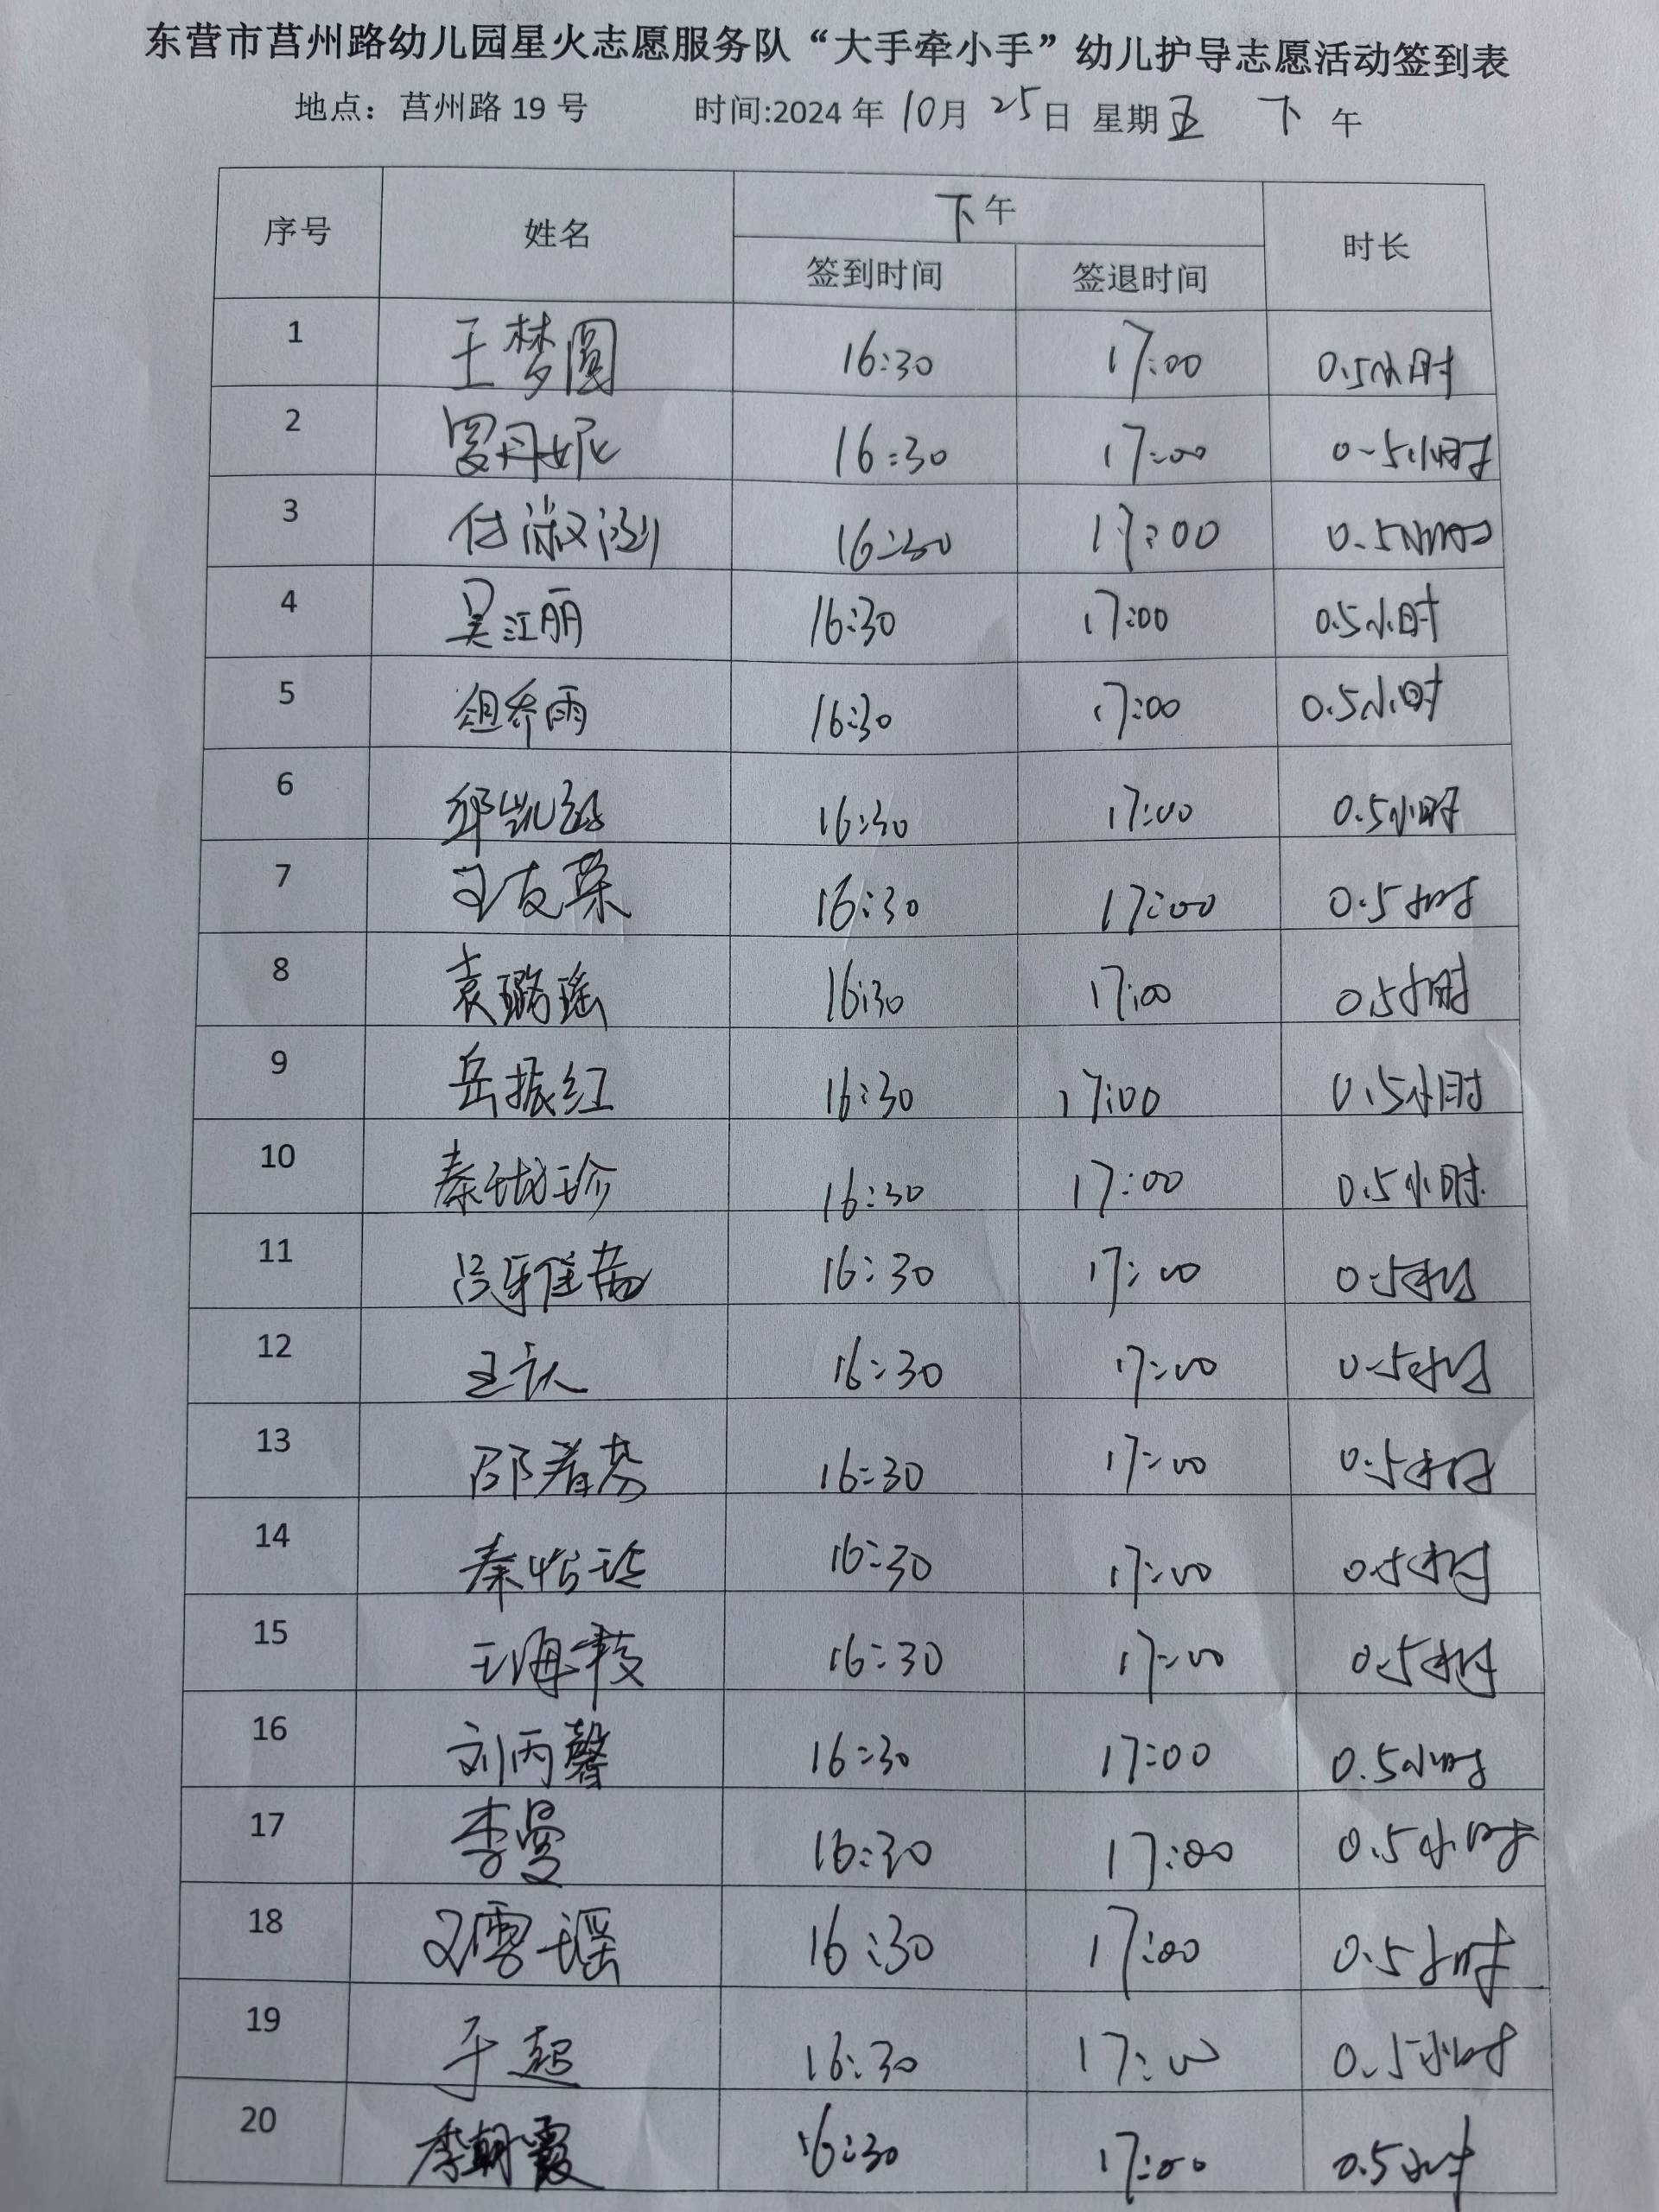 东营市莒州路幼儿园星火志愿服务队“大手牵小手”幼儿护导志愿活动签到表
地点：莒州路 19 号 时间:2024 年 10月 25日 星期五 下午
序号 姓名 下午 时长
签到时间 签退时间
1 王梦圆 16:30 17:00 0.5小时
2 罗丹妮 16:30 17:00 0.5小时
3 付淑 16:30 17:00 0.5小时
4 吴江丽 16:30 17:00 0.5小时
5 雨 16:30 17:00 0.5小时
6 邱凯 16:30 17:00 0.5小时
7 王友荣 16:30 17:00 0.5小时
8 袁璐瑶 16:30 17:00 0.5小时
9 岳振红 16:30 17:00 0.5小时
10 秦珍 16:30 17:00 0.5小时.
11 16:30 17:00 0.5小时
12 王 16:30 17:00 0.5小时
13 邵春芬 16:30 17:00 0.5小时
14 秦怡玲 16:30 17:00 0.5小时
15 王海棱 16:30 17:00 0.5小时
16 刘丙馨 16:30 17:00 0.5小时
17 李曼 16:30 17:00 0.5小时
18 王雪瑶 16:30 17:00 0.5小时
19 于超 16:30 17:00 0.5小时
20 李朝霞 16:30 17:00 0.5小时